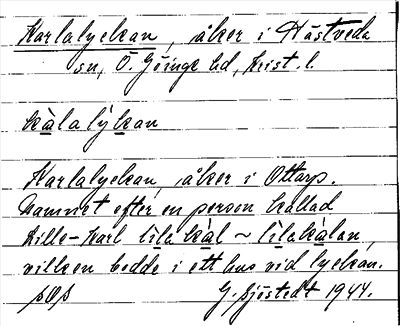 Karlalyckan, åker i Hästveda
sn, Ö. Göinge hd, Krist. l.
kàlalỳkan
Karlalyckan, åker i Ottarp.
Namnet efter en person kallad
Lille-Karl lilakàl ~ lìlakàlan,
vilken bodde i ett hus vid lyckan.
G. Sjöstedt 1944.